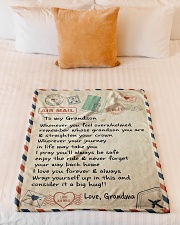 AIR MAIL
To my Grandson
Whenever you feel overwhelmed
remember whose grandson you are
& straighten your crown
Wherever your journey
in life may take you
I pray you'll always be safe
enjoy the ride & never forget
your way back home
I love you forever & always
Wrap yourself up in this and
consider it a big hug!!
Love, Grandma